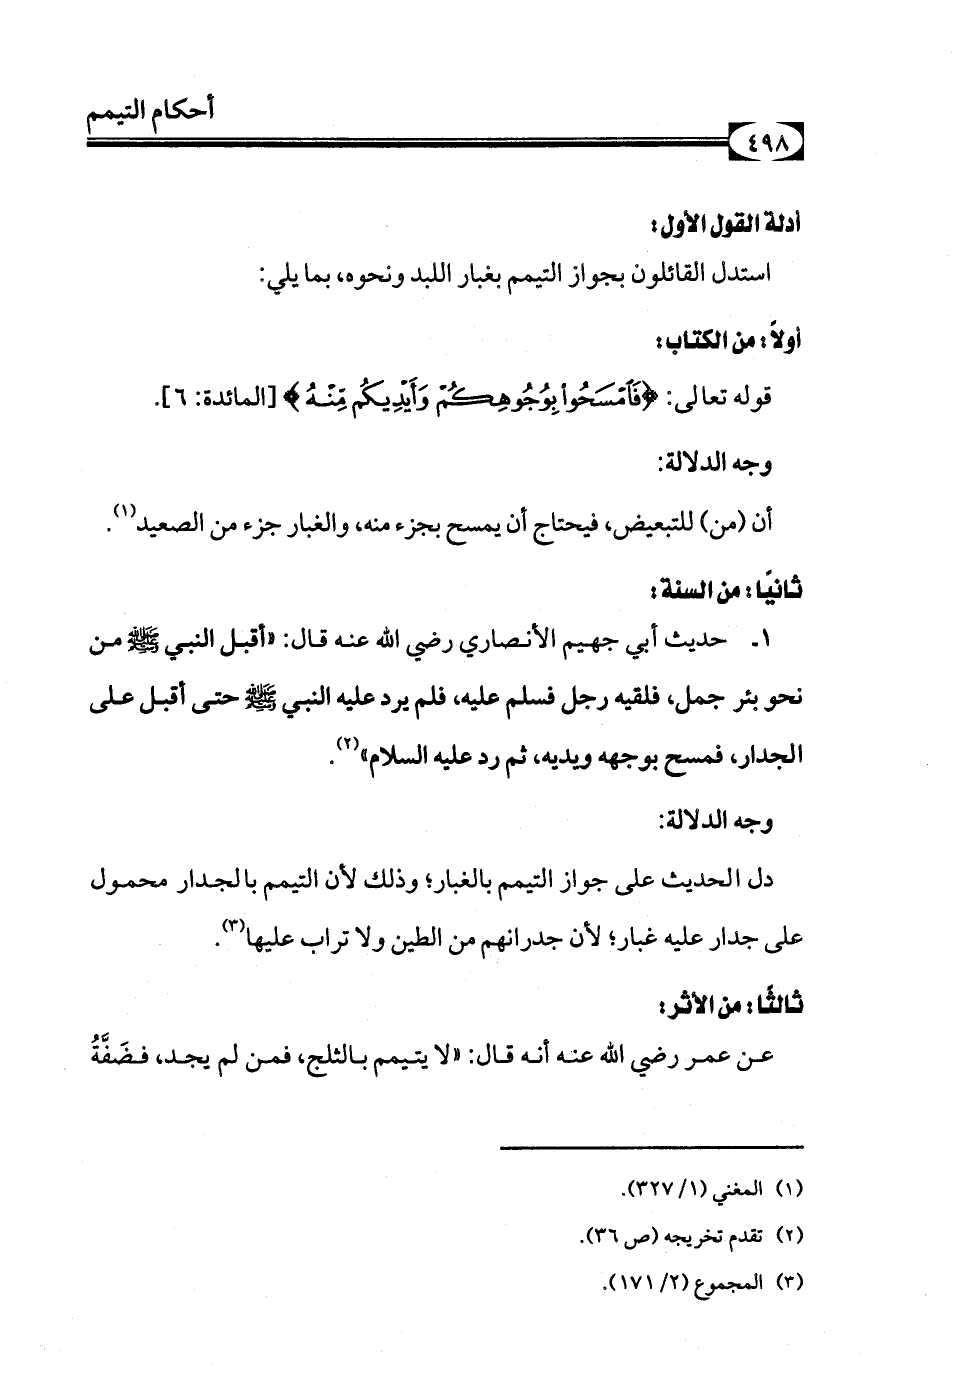 أحكام التيمم
٤٩٨
أدلة القول الأول:
استدل القائلون بجواز التيمم بغبار اللبد ونحوه، بما يلي:
أولاً: من الكتاب:
قوله تعالى: ﴿فَٱمْسَحُوا۟ بِوُجُوهِكُمْ وَأَيْدِيكُم مِّنْهُ﴾ [المائدة: ٦].
وجه الدلالة:
أن (من) للتبعيض، فيحتاج أن يمسح بجزء منه، والغبار جزء من الصعيد(١).
ثانيًا: من السنة:
١ـ حديث أبي جهيم الأنصاري رضي الله عنه قال: «أقبل النبي ﷺ من
نحو بئر جمل، فلقيه رجل فسلم عليه، فلم يرد عليه النبي ﷺ حتى أقبل على
الجدار، فمسح بوجهه ويديه، ثم رد عليه السلام»(٢).
وجه الدلالة:
دل الحديث على جواز التيمم بالغبار؛ وذلك لأن التيمم بالجدار محمول
على جدار عليه غبار؛ لأن جدرانهم من الطين ولا تراب عليها(٣).
ثالثًا: من الأثر:
عن عمر رضي الله عنه أنه قال: «لا يتيمم بالثلج، فمن لم يجد، فضَفَّةُ
(١) المغني (١/ ٣٢٧).
(٢) تقدم تخريجه (ص ٣٦).
(٣) المجموع (٢/ ١٧١).